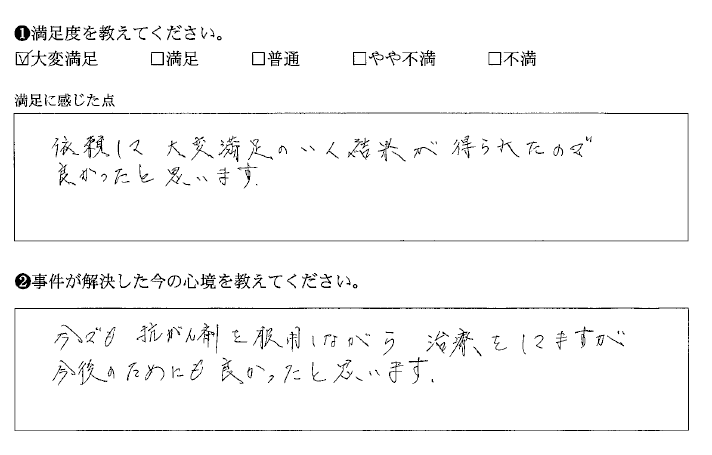 ❶満足度を教えてください。
☑大変満足 □満足 □普通 □やや不満 □不満
満足に感じた点
依頼して 大変満足のいく結果が 得られたので
良かったと思います。
❷事件が解決した今の心境を教えてください。
今でも 抗がん剤を服用しながら 治療をしてますが
今後のためにも良かったと思います。